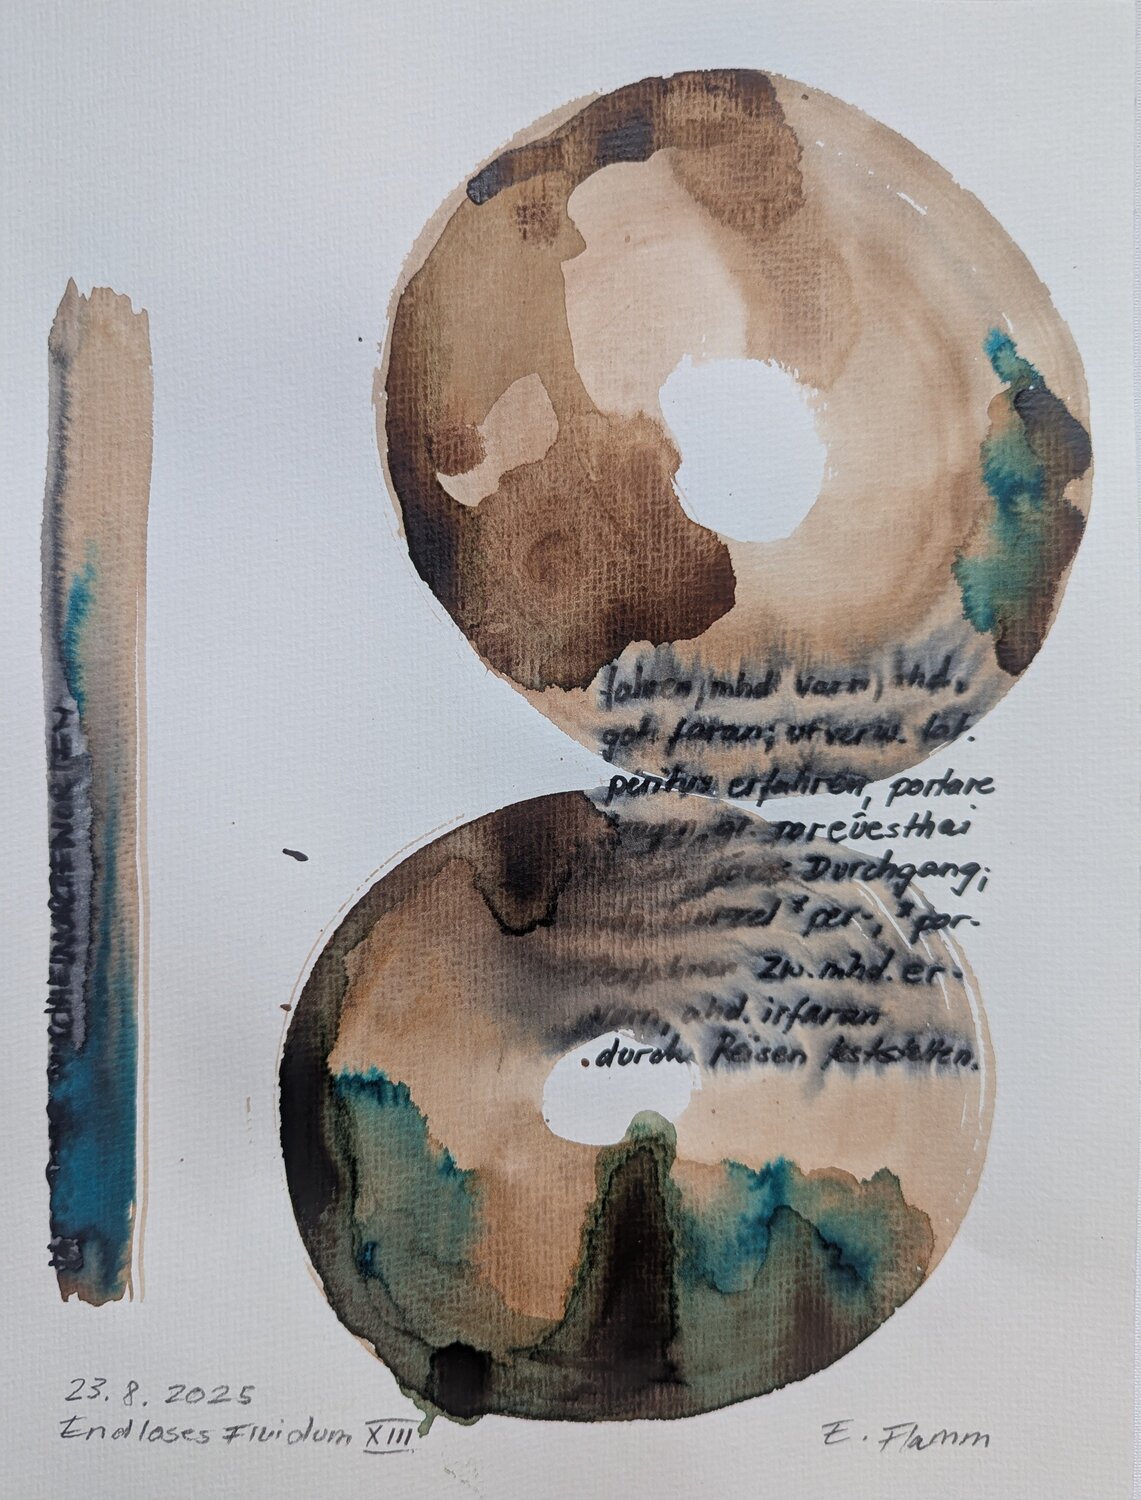 fahren, mhd. varn, ahd.
got. faran; urverw. lat.
peritus erfahren, portare
gr. poreúesthai
Durchgang;
*per-, *por-
erfahren Zw. mhd. er-
varn, ahd. irfaran
durch Reisen feststellen.
23.8.2025
Endloses Fluidum XIII
E. Flamm